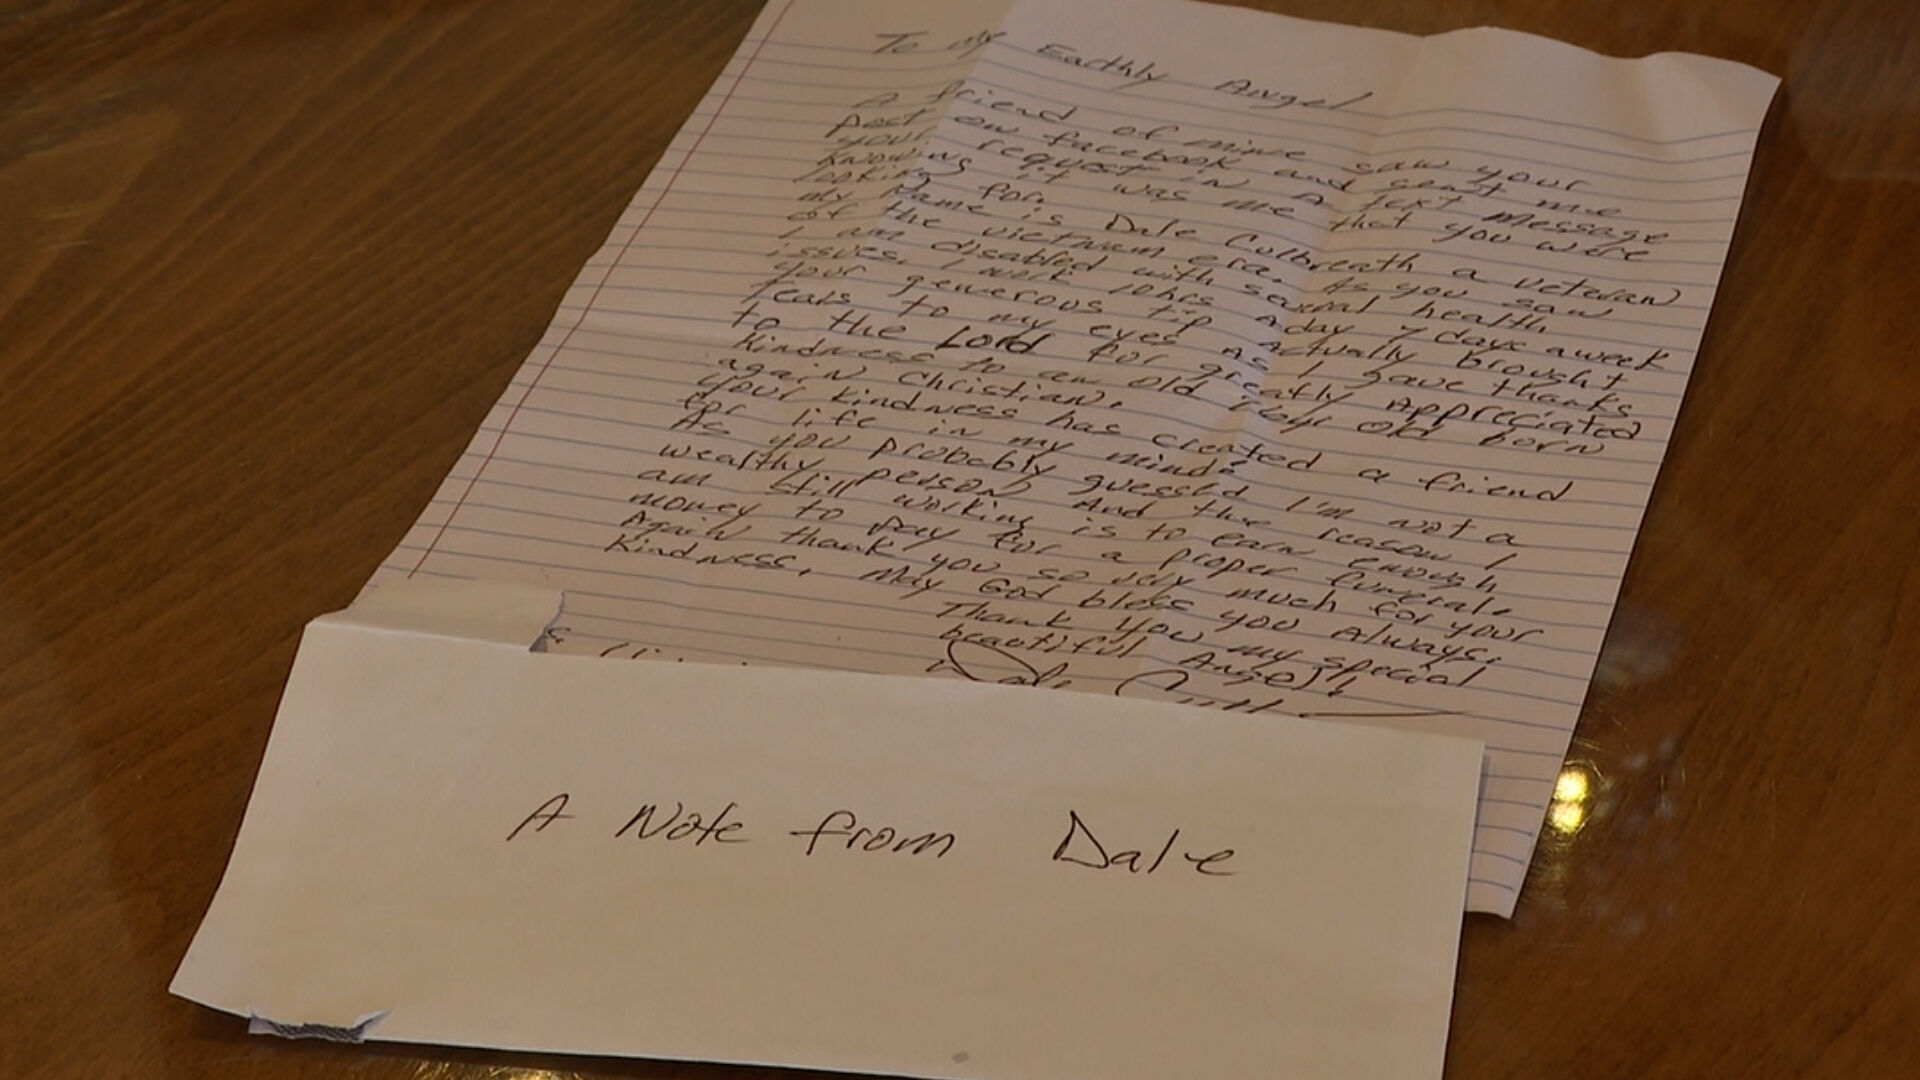 To My Earthly Angel
A friend of mine saw your
post on facebook and sent me
your request in A text message
knowing it was me that you were
looking for.
my Name is Dale Culbreath a veteran
of the vietnam era. As you saw
I am disabled with several health
issues. I work 10hrs Aday 7 days aweek
your generous tip Actually brought
tears to my eyes As I gave thanks
to the Lord for greatly Appreciated
kindness to an old old born
again Christian.
your kindness has created a friend
for life in my mind.
As you probably guessed I'm not a
wealthy person And the reason I
am still working is to earn enough
money to pay for a proper funeral.
Again thank you so very much for your
kindness. May God bless you Always.
Thank you my special
beautiful Angel!!
Dale
A Note from Dale